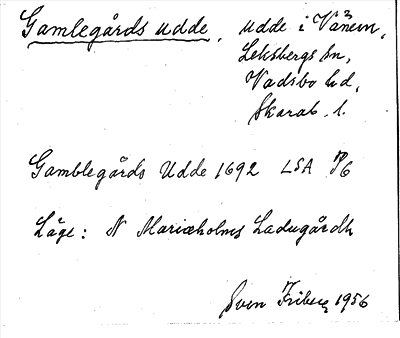 Gamlegårds udde, udde i Vänern,
Leksbergs sn,
Vadsbo hd,
Skarab. l.
Gamblegårds Udde 1692 LSA P6
Läge: N Mariæholms Ladugårdh
Sven Friberg 1956